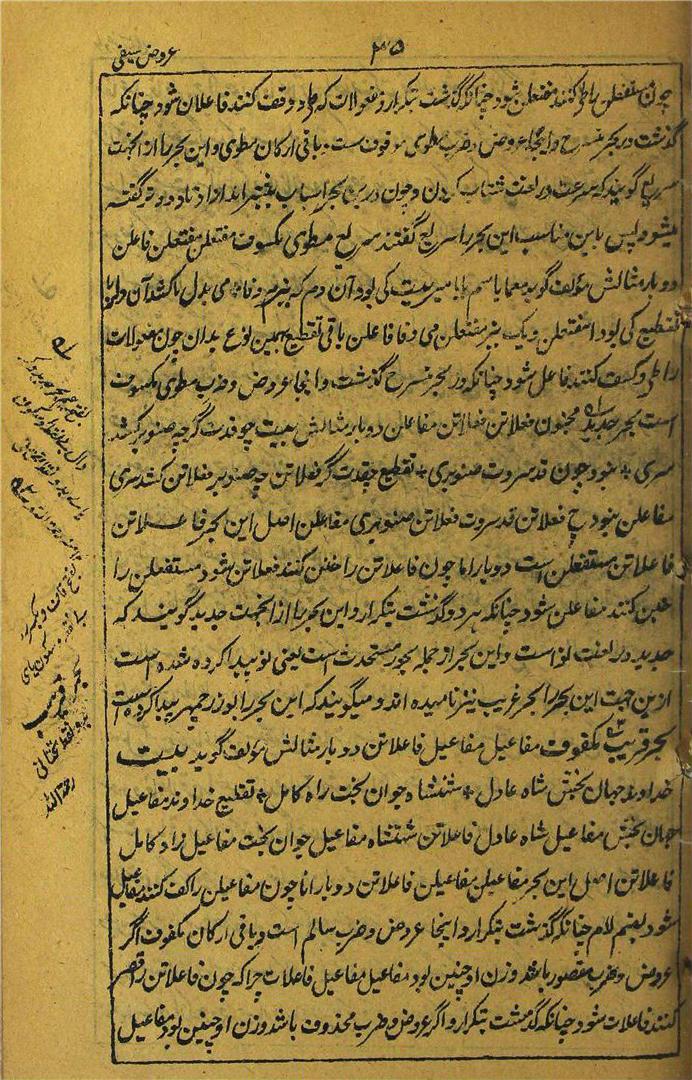 عروض سیفی
۳۵
چون مستفعلن را طی کنند مفتعلن شود چنانکه گذشت بتکرار و مفعولات که طی و وقف کنند فاعلان شود چنانکه
گذشت در بحر منسرح و اینجا عروض و ضرب مطوی موقوف ست و باقی ارکان مطوی و این بحر را از انجهت
سریع گویند که سرعت در لغت شتاب کردن و چون درین بحر اسباب بیشتر اند از اوتاد و زودتر گفته
میشود پس باین مناسبت این بحر را سریع گفتند سریع مطوی مکسوف مفتعلن مفتعلن فاعلن
دو بار مثالش مؤلف گوید معما باسم بابا میر بیت کی بود آن دم که
تقطیع کی بود ا مفتعلن باقی تقطیع بهمین نوع بدان چون مفعولات
را طی و کسف کنند فاعلن شود چنانکه در بحر منسرح گذشت و اینجا عروض و ضرب مطوی مکسوف
است بحر جدید مخبون فعلاتن فعلاتن مفاعلن دو بار مثالش بیت چو قدت گرچه صنوبر کشد
سری * نبود چون قد سروت صنوبری * تقطیع چقدت گر فعلاتن چه صنوبر فعلاتن کشد سری
مفاعلن نبود چ فعلاتن قد سروت فعلاتن صنوبری مفاعلن اصل این بحر فاعلاتن
فاعلاتن مستفعلن است دو بار اما چون فاعلاتن را خبن کنند فعلاتن شود مستفعلن را
خبن کنند مفاعلن شود چنانکه هر دو گذشت بتکرار و این بحر را از انجهت جدید گویند که
جدید در لغت نو است و این بحر از جمله بحور مستحدث است یعنی نو پیدا کرده شده است
ازین جهت این بحر را بحر غریب نیز نامیده اند و میگویند که این بحر را بوزرجمهر پیدا کرده است
بحر قریب مکفوف مفاعیل مفاعیل فاعلاتن دو بار مثالش مؤلف گوید بیت
خداوند جهان بخش شاه عادل * شهنشاه جوان بخت راد کامل * تقطیع خداوند مفاعیل
جهان بخش مفاعیل شاه عادل فاعلاتن شهنشاه مفاعیل جوان بخت مفاعیل راد کامل
فاعلاتن اصل این بحر مفاعیلن مفاعیلن فاعلاتن دو بار اما چون مفاعیلن را کف کنند مفاعیل
شود بضم لام چنانکه گذشت بتکرار و اینجا عروض و ضرب سالم است و باقی ارکان مکفوف اگر
عروض و ضرب مقصور باشد وزن او چنین بود مفاعیل مفاعیل فاعلات چرا که چون فاعلاتن را قصر
کنند فاعلات شود چنانکه گذشت بتکرار و اگر عروض و ضرب محذوف باشد وزن او چنین بود مفاعیل
بحر قریب
رحمه الله